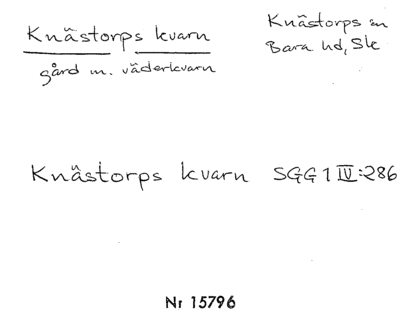 Knästorps kvarn
gård m. väderkvarn
Knästorps sn
Bara hd, Sk
Knästorps kvarn SGG 1 IV:286
Nr 15796